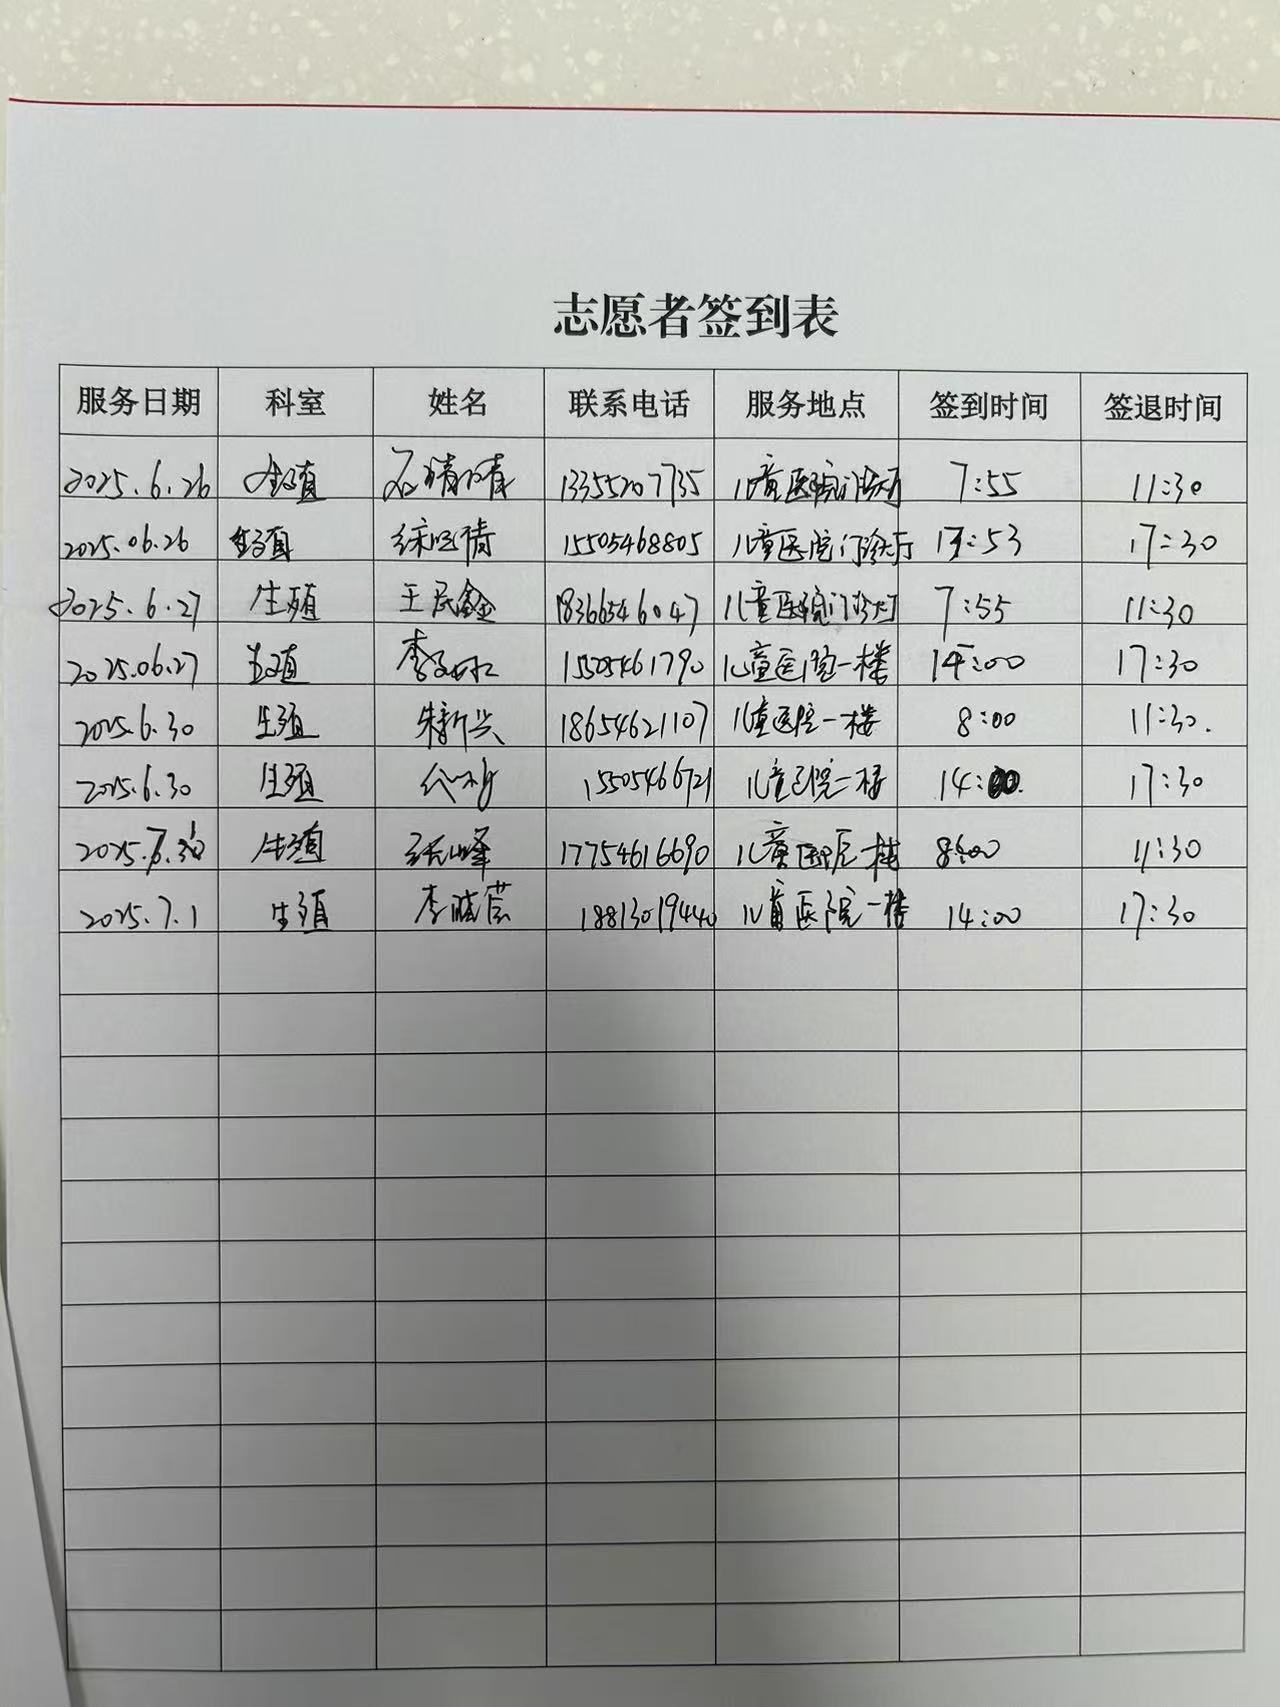 志愿者签到表
服务日期 科室 姓名 联系电话 服务地点 签到时间 签退时间
2025.6.26 生殖 石晴晴 13355207735 儿童医院门诊大厅 7:55 11:30
2025.06.26 生殖 倩 15505468805 儿童医院门诊大厅 13:53 17:30
2025.6.27 生殖 王民鑫 18366546047 儿童医院门诊大厅 7:55 11:30
2025.06.27 生殖 李 15505461790 儿童医院一楼 14:00 17:30
2025.6.30 生殖 朱新兴 18654621107 儿童医院一楼 8:00 11:30.
2025.6.30 生殖 15505466721 儿童医院一楼 14:00. 17:30
2025.7. 生殖 张峰 17754616690 儿童医院一楼 8:00 11:30
2025.7.1 生殖 李 18813019440 儿童医院一楼 14:00 17:30